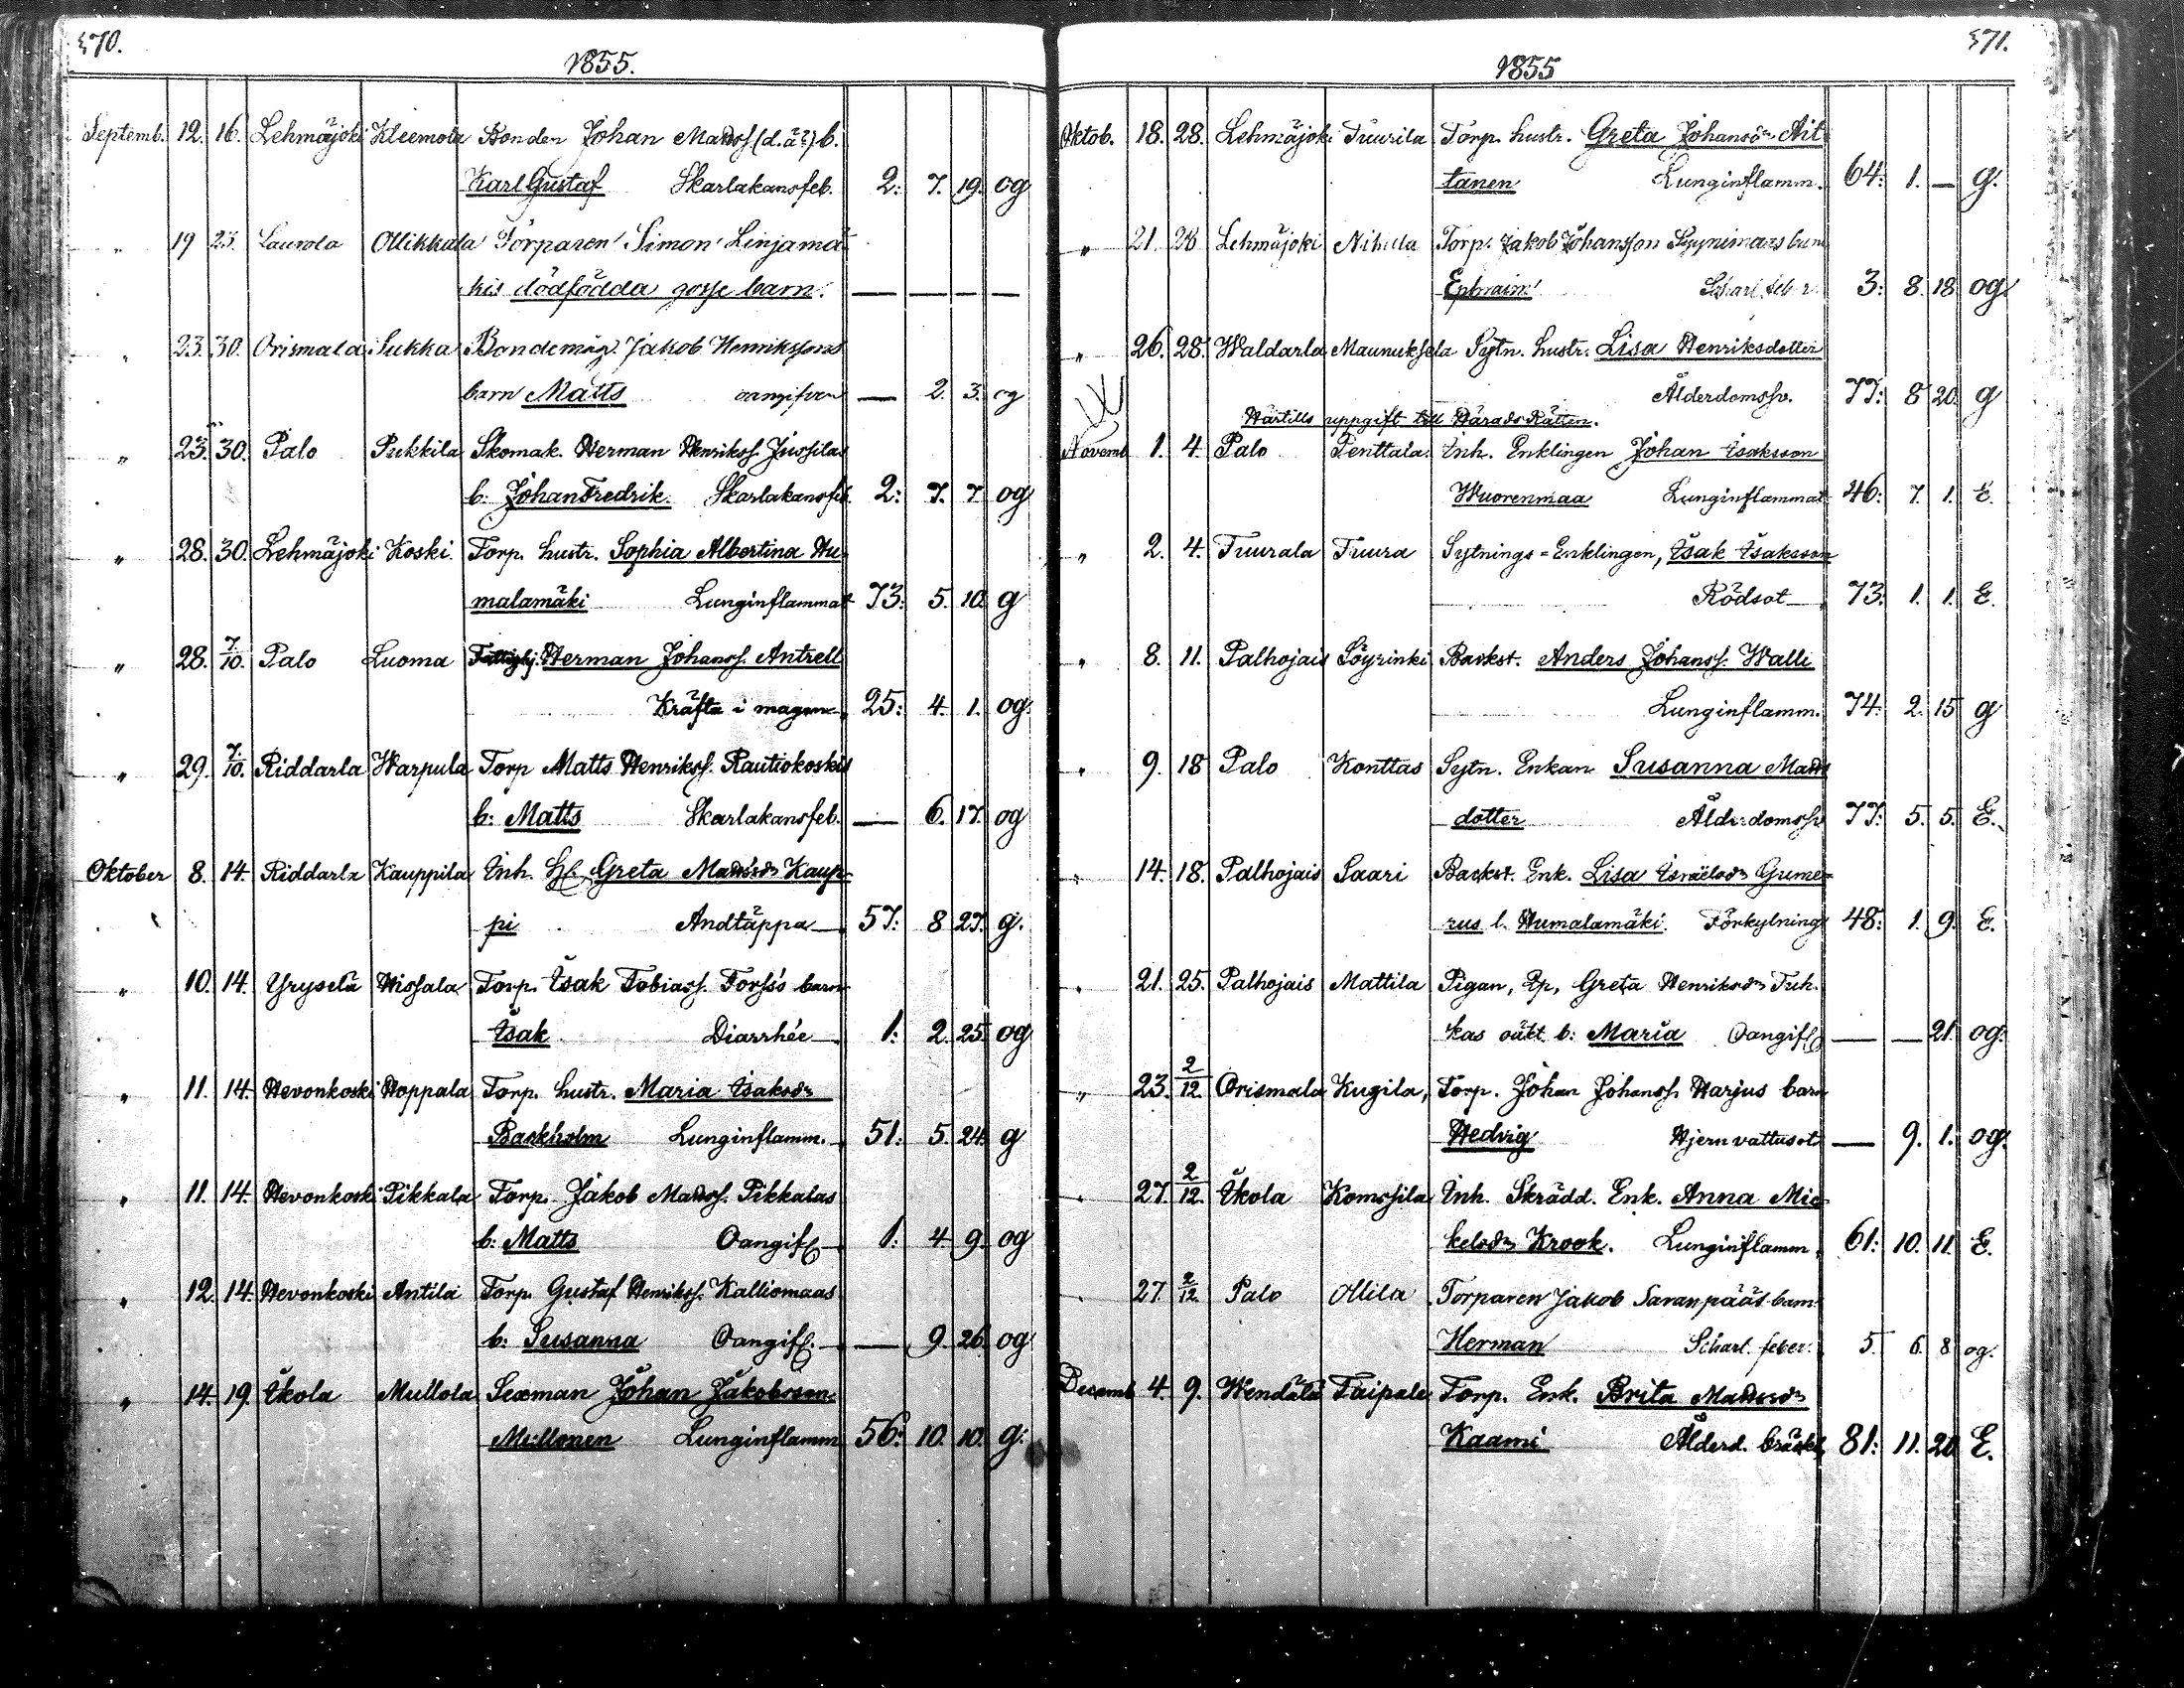 570.
1855.
Septemb. 12. 16. Lehmäjoki Kleemola Bonden Johan Mattss. (d.ä:s) b.
Karl Gustaf Skarlakansfeb. 2: 7. 19. og
" 19 23. Laurola Ollikkala Torparen Simon Linjamä
kis dödfödda gosse barn. — — — —
" 23. 30. Orismala Sukka Bondemåg. Jakob Henrikssons
barn Matts oangifven — 2. 3. og
" 23. 30. Palo Pukkila Skomak. Herman Henrikss. Jussilas
b: Johan Fredrik. Skarlakansfeb. 2: 7. 7 og
" 28. 30. Lehmäjoki Koski. Torp. hustr. Sophia Albertina Hu-
malamäki Lunginflammat 73: 5. 10. g
" 28. 7/10. Palo Luoma Fattighj. Herman Johanss. Antrell
Kräfta i magen 25: 4. 1. og.
" 29. 7/10. Riddarla Warpula Torp Matts Henrikss. Rautiokoskis
b: Matts Skarlakansfeb. — 6. 17. og
Oktober 8. 14. Riddarla Kauppila Inh. Greta Mattsdr Kaup-
pi Andtäppa 57: 8 27. g.
" 10. 14. Yryselä Hissala Torp. Isak Tobiass. Forss's barn
Isak Diarrhée 1: 2. 25. og
" 11. 14. Hevonkoski Hoppala Torp. hustr. Maria Isaksdr
Backholm Lunginflamm. 51: 5. 24. g
" 11. 14. Hevonkoski Pikkala Torp. Jakob Mattss. Pikkalas
b: Matts Oangif. 1: 4. 9. og
" 12. 14. Hevonkoski Antila Torp. Gustaf Henrikss. Kalliomaas
b: Susanna Oangif. — 9. 26. og
" 14. 19. Ikola Mullola Sexman Johan Jakobsson
Mullonen Lunginflamm 56: 10. 10. g.
571.
1855
Oktob. 18. 28. Lehmäjoki Tuurila Torp. hustr. Greta Johansdr Ait-
tanen Lunginflamm. 64: 1. — g.
" 21. 28 Lehmäjoki Nikula Torp. Jakob Johansson Syynimaas barn
Ephraim Scharl. feber 3: 8. 18 og.
" 26. 28. Waldarla Maunuksela Sytn. hustr. Lisa Henriksdotter
Ålderdomssv. 77: 8 20. g
Härtills uppgift till Härads Rätten.
Novemb 1. 4. Palo Penttala. Inh. Enklingen Johan Isaksson
Wuorenmaa Lunginflammat 46: 7. 1. E.
" 2. 4. Tuurala Tuura Sytnings-Enklingen, Isak Isaksson
Rödsot 73. 1. 1. E.
" 8. 11. Palhojais Söyrinki Backst. Anders Johanss. Walli
Lunginflamm. 74. 2. 15 g
" 9. 18 Palo Konttas Sytn. Enkan Susanna Matts
dotter Ålderdomssv 77: 5. 5. E.
" 14. 18. Palhojais Saari Backst. Enk. Lisa Israelsdr Gume-
rus l. Humalamäki. Förkylning 48: 1. 9. E.
" 21. 25. Palhojais Mattila Pigan, Greta Henriksdr Tuh-
kas oäkt. b: Maria Oangif. — — 21. og.
" 23. 2/12. Orismala Kugila, Torp. Johan Johanss. Harjus barn
Hedvig Hjernvattusot — 9. 1. og.
" 27. 2/12. Ikola Komssila Inh. Skrädd. Enk. Anna Mic-
kelsdr Krook. Lunginflamm. 61: 10. 11. E.
" 27. 2/12. Palo Ollila Torparen Jakob Saranpääs barn
Herman Scharl. feber. 5. 6. 8 og.
Decemb 4. 9. Wendälä Taipale Torp. Enk. Brita Mattsdr
Kaami Ålderd. bräckl. 81: 11. 20 E.